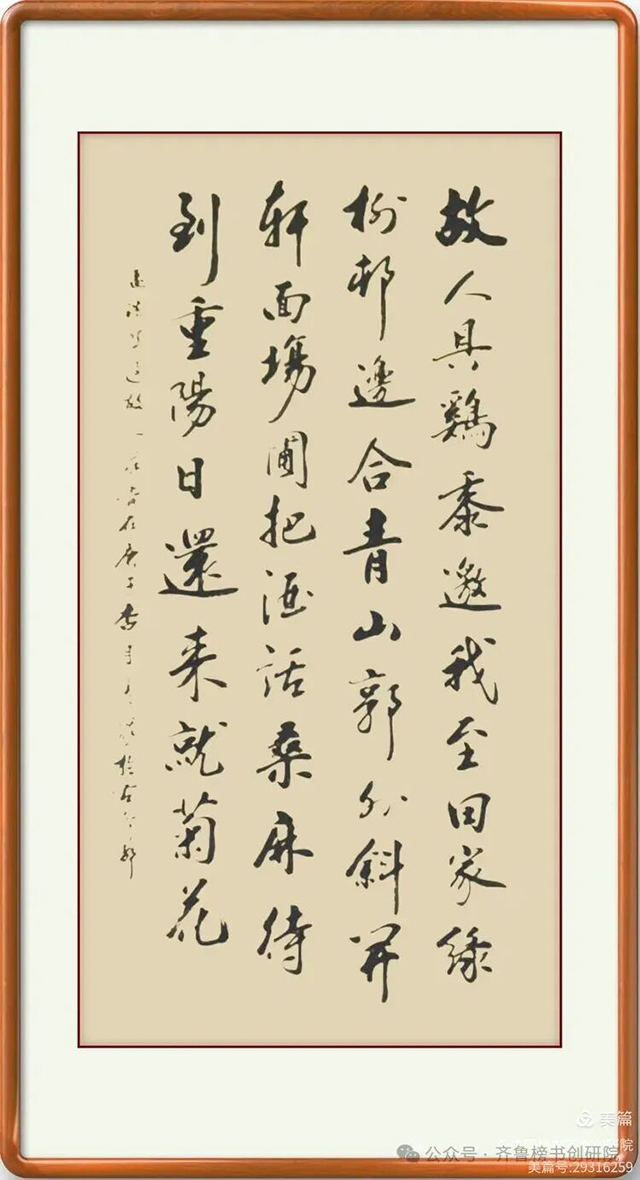 故人具鷄黍邀我至田家綠
樹邨邊合青山郭外斜開
軒面場圃把酒話桑麻待
到重陽日還来就菊花
故人 一 庚子
美篇
公众号·齐鲁榜书创研院
美篇号:29316259